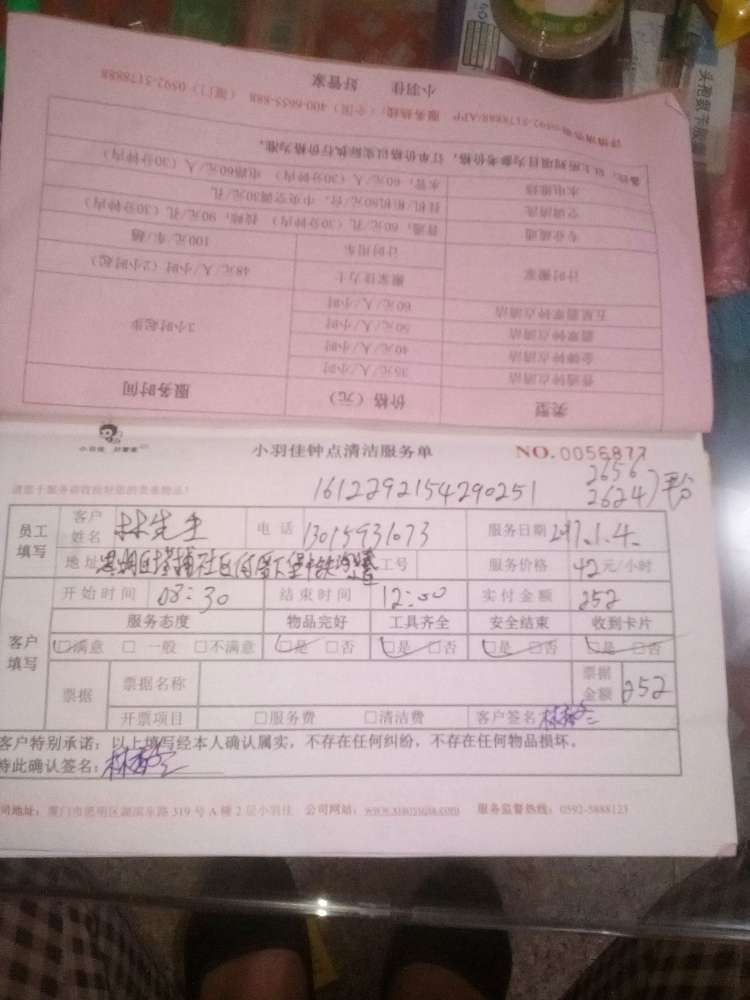 小羽佳 好管家
服务热线：(全国) 400-6655-888 (厦门) 0592-5178888
备注：以上所列项目为参考价格，订单价格以实际执行价格为准。
水电维修 水管，60元/人 (30分钟内) 电路60元/人 (30分钟内)
空调清洗 挂机/柜机50元/台，中央空调30元/孔
专业疏通 普通，60元/孔 (30分钟内)
计时搬家 计时用车 100元/车/趟
搬家佳力士 48元/人/小时 (2小时起)
五星翡翠钟点清洁 60元/人/小时 3小时起步
翡翠钟点清洁 50元/人/小时
金牌钟点清洁 40元/人/小时
普通钟点清洁 35元/人/小时
类型 价格 (元) 服务时间
小羽佳 好管家
小羽佳钟点清洁服务单
NO.0056877
1612292154290251
2656
2624
员工填写 客户姓名 林先生 电话 13015931073 服务日期 2017.1.4.
地址 工号 服务价格 42元/小时
开始时间 08:30 结束时间 12:00 实付金额 252
客户填写 服务态度 物品完好 工具齐全 安全结束 收到卡片
□满意 □一般 □不满意 □是 □否 □是 □否 □是 □否 □是 □否
票据 票据名称 票据金额 252
开票项目 □服务费 □清洁费 客户签名
客户特别承诺：以上填写经本人确认属实，不存在任何纠纷，不存在任何物品损坏。
特此确认签名：
公司地址：厦门市思明区湖滨东路319号A幢2层小羽佳 公司网站：www.xiaoyujia.com 服务监督热线：0592-5888123